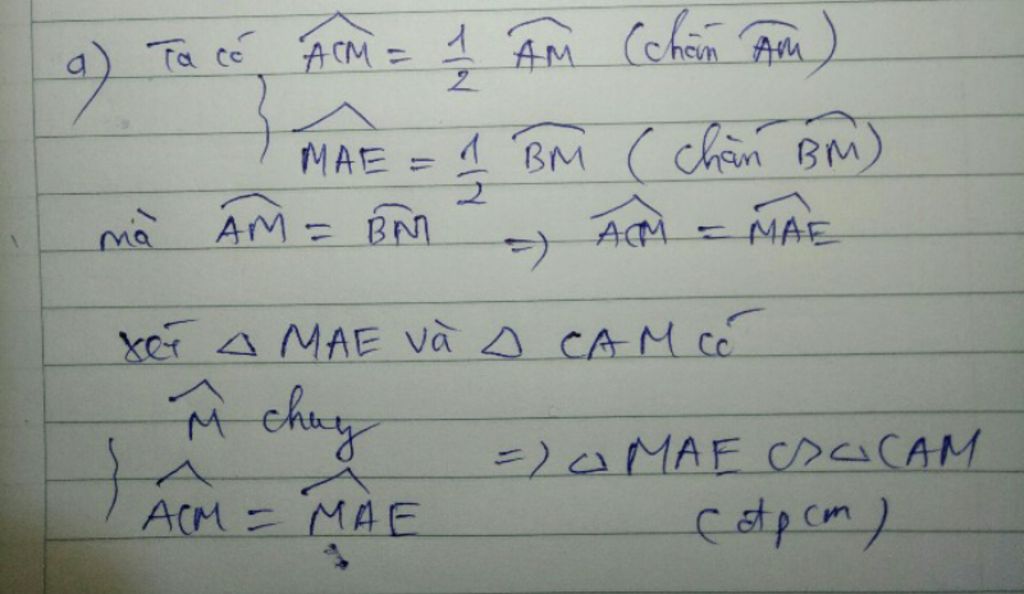 a) Ta có ACM = 1/2 AM (chắn AM)
MAE = 1/2 BM (chắn BM)
mà AM = BM => ACM = MAE
xét △ MAE và △ CAM có
M chung
=> △ MAE ∽ △ CAM
ACM = MAE (đpcm)